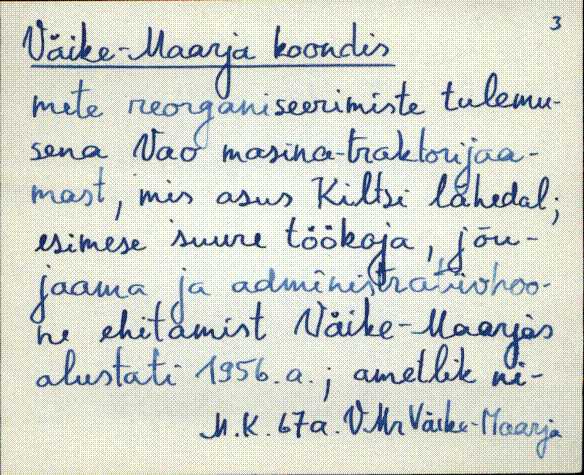 3
Väike-Maarja koondis
mete reorganiseerimiste tulemu-
sena Vao masina-traktorijaa-
mast, mis asus Kiltsi lähedal;
esimese suure töökoja, jõu-
jaama ja administratiivhoo-
ne ehitamist Väike-Maarjas
alustati 1956.a.; ametlik ni-
M.K. 67a. VMr Väike-Maarja